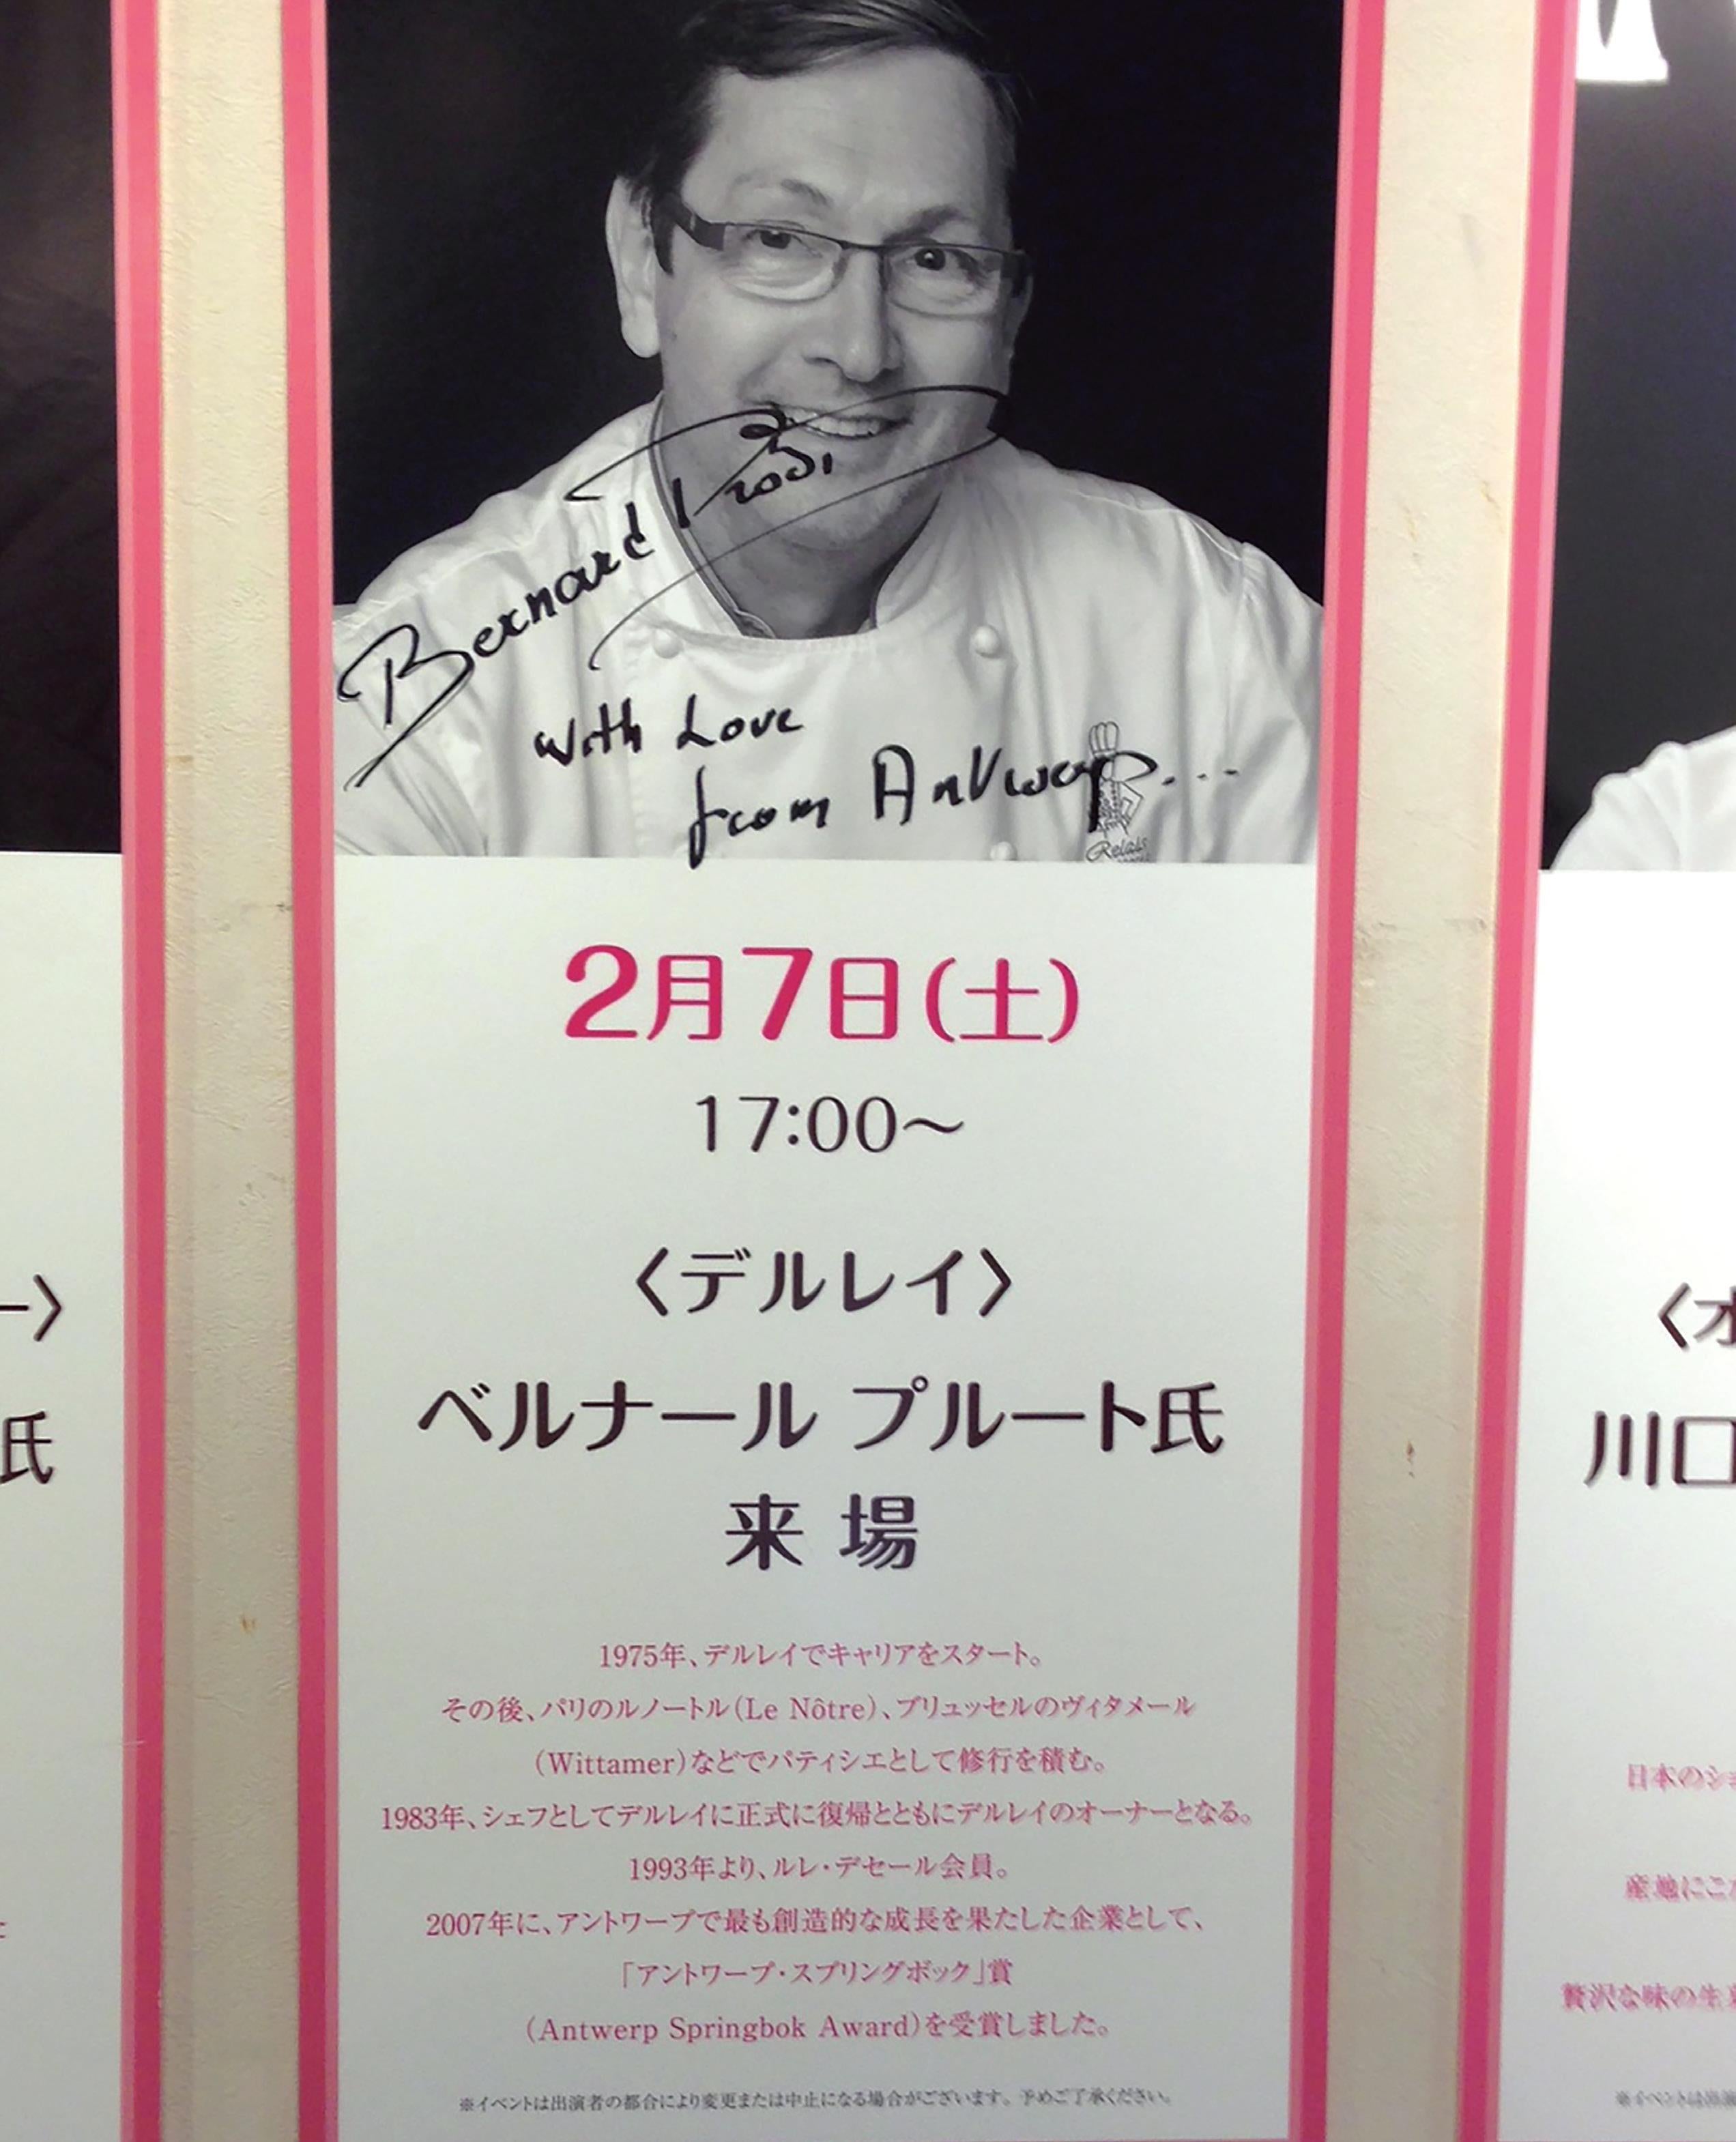 Bernard Proot
with Love
from Antwerp...
Relais
2月7日(土)
17:00〜
〈デルレイ〉
ベルナール プルート氏
来場
1975年、デルレイでキャリアをスタート。
その後、パリのルノートル(Le Nôtre)、ブリュッセルのヴィタメール
(Wittamer)などでパティシエとして修行を積む。
1983年、シェフとしてデルレイに正式に復帰とともにデルレイのオーナーとなる。
1993年より、ルレ・デセール会員。
2007年に、アントワープで最も創造的な成長を果たした企業として、
「アントワープ・スプリングボック」賞
(Antwerp Springbok Award)を受賞しました。
※イベントは出演者の都合により変更または中止になる場合がございます。予めご了承ください。
ー〉
氏
〈オ
川口
日本のショ
産地にこ
贅沢な味の生
※イベントは出演